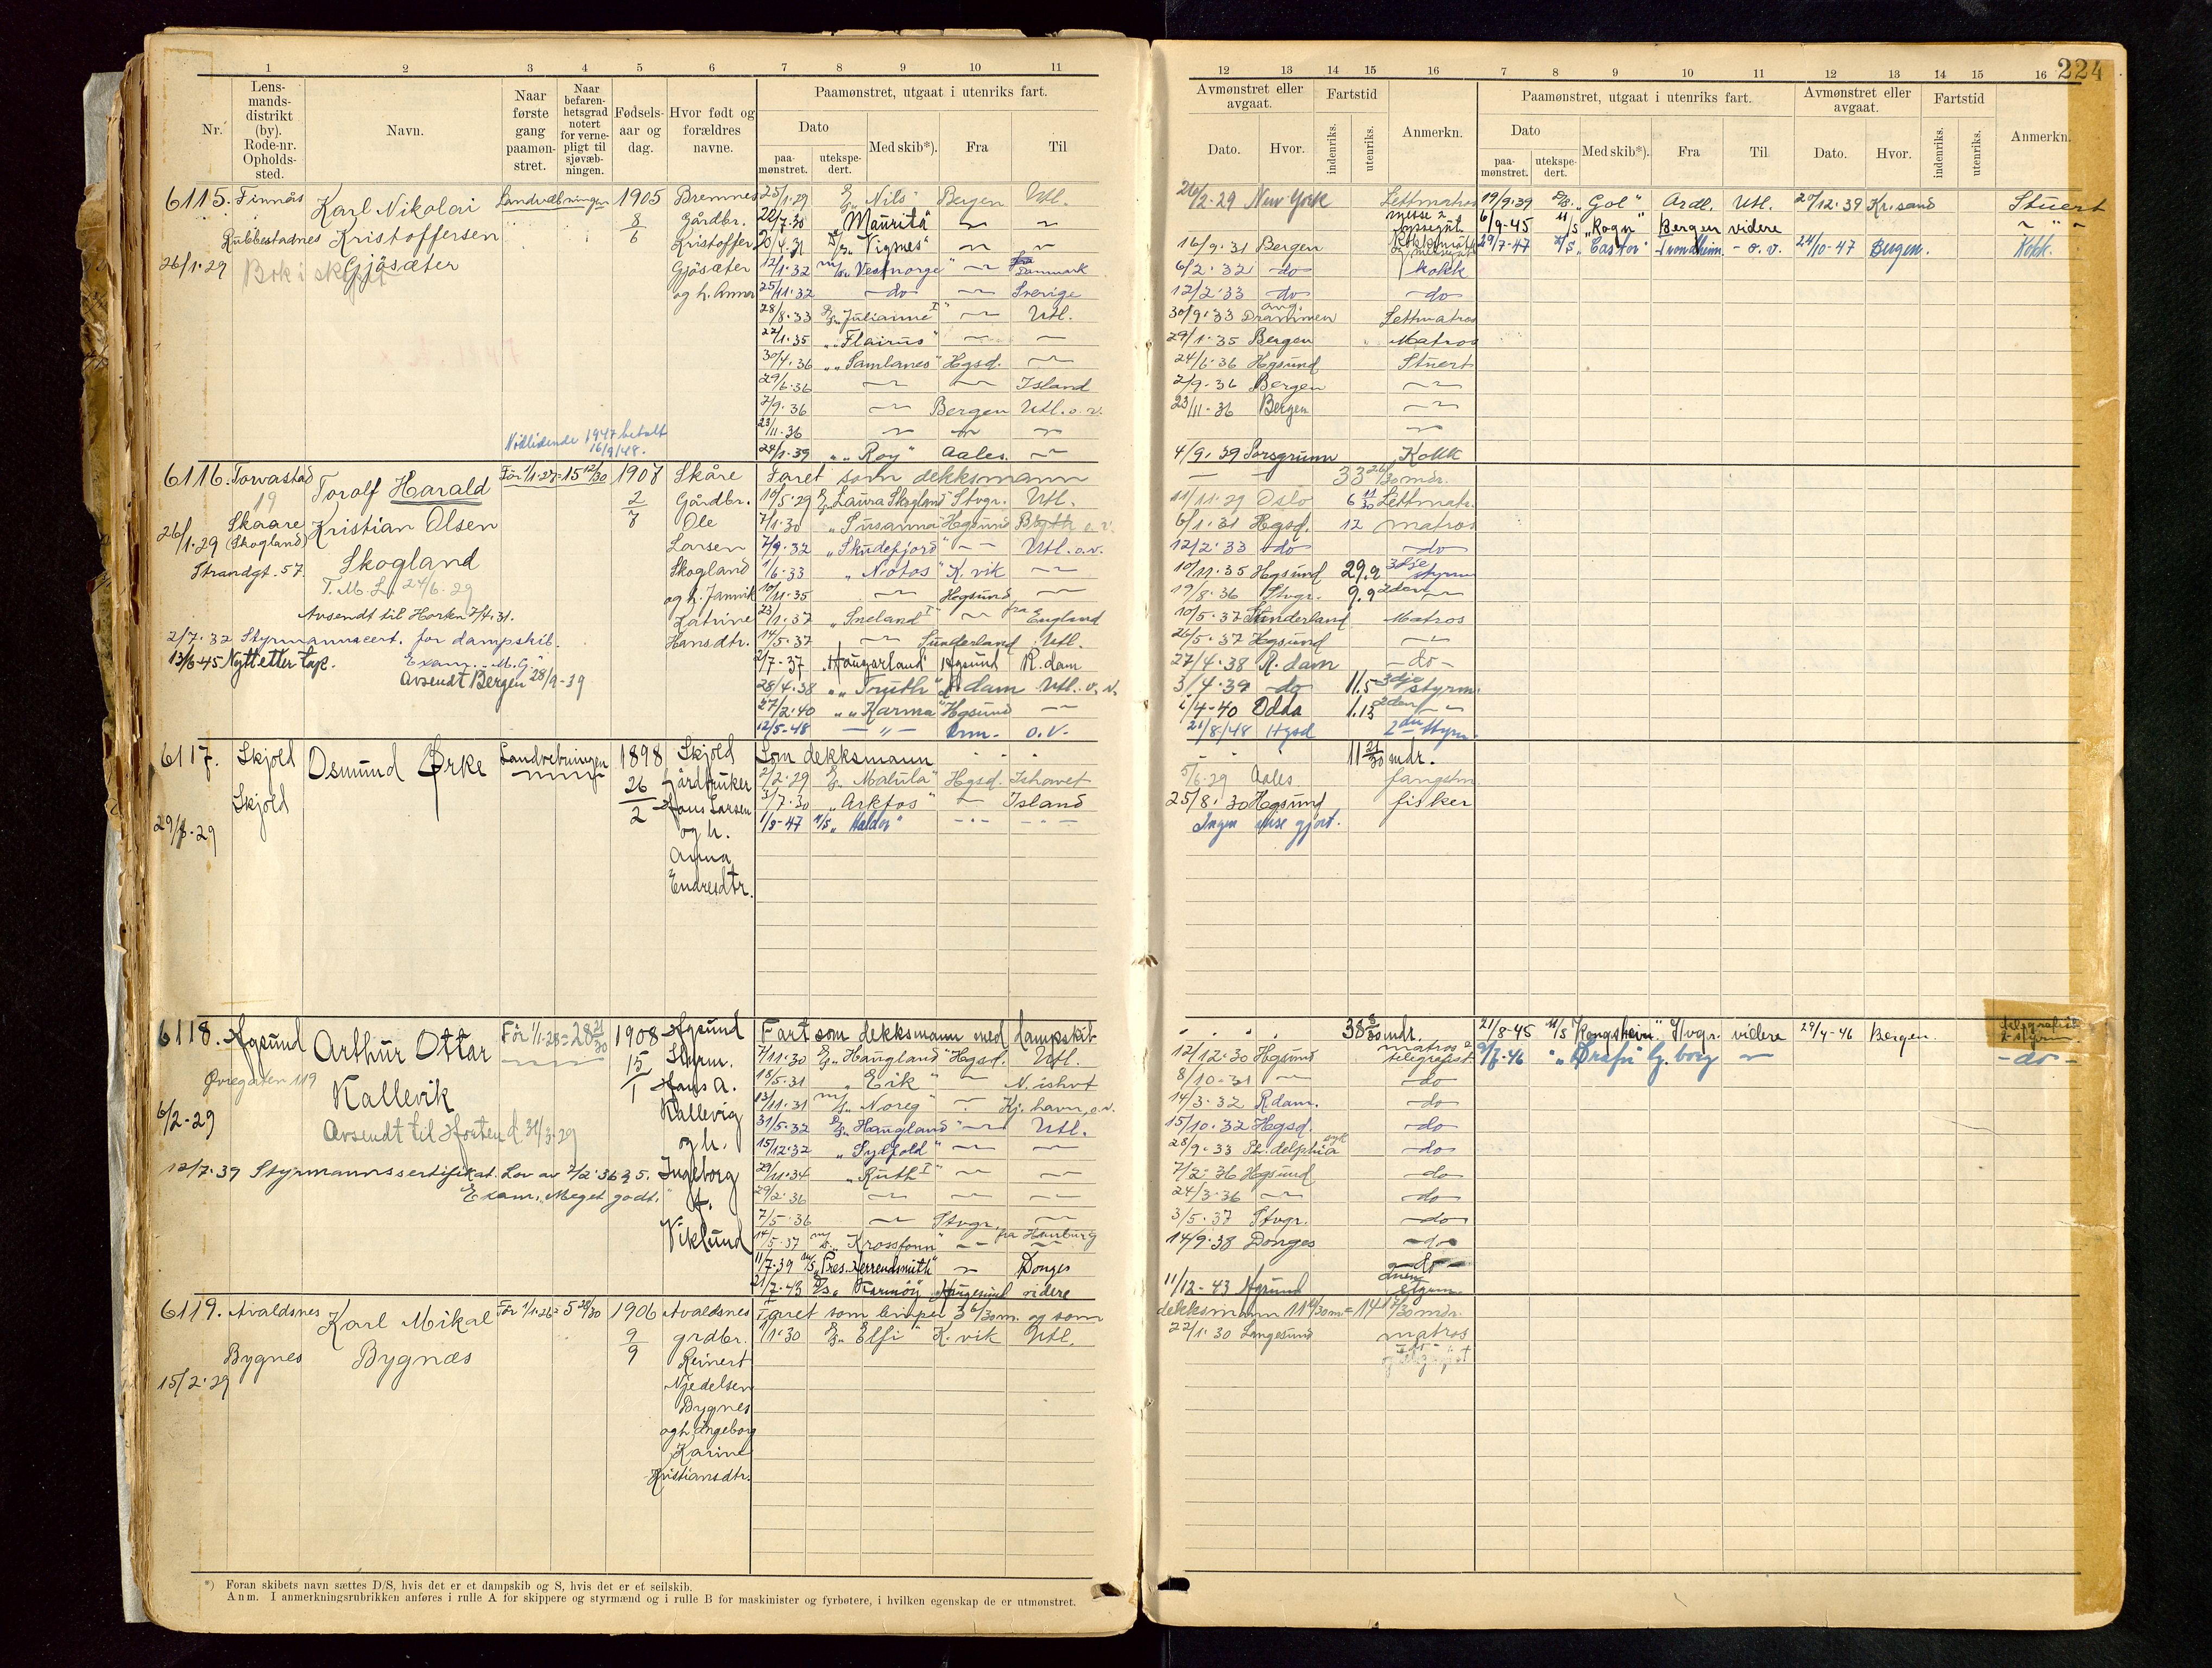 224
1 2 3 4 5 6 7 8 9 10 11
12 13 14 15 16 7 8 9 10 11 12 13 14 15 16
Nr.
Lens-
mands-
distrikt
(by).
Rode-nr.
Opholds-
sted.
Navn.
Naar
første
gang
paamøn-
stret.
Naar
befaren-
hetsgrad
notert
for verne-
pligt til
sjøvæb-
ningen.
Fødsels-
aar og
dag.
Hvor født og
forældres
navne.
Paamønstret, utgaat i utenriks fart.
Dato
paa-
mønstret.
utekspe-
dert.
Med skib*).
Fra
Til
Avmønstret eller
avgaat.
Dato.
Hvor.
Fartstid
indenriks.
utenriks.
Anmerkn.
Paamønstret, utgaat i utenriks fart.
Dato
paa-
mønstret.
utekspe-
dert.
Med skib*).
Fra
Til
Avmønstret eller
avgaat.
Dato.
Hvor.
Fartstid
indenriks.
utenriks.
Anmerkn.
6115. Finnås
Rubbestadnes
26/1.29
Karl Nikolai
Kristoffersen
Gjøsæter
Landvebningen
1905
8/6
Bremnes
Gårdbr.
Kristoffer
Gjøsæter
og h. Anna
Nødlidende 1947 betalt
16/9/48.
25/1.29 "Nils" Bergen Utl. 26/2.29 New York Lettmatros
22/7.30 "Maurita"
"Vignes" 16/9.31 Bergen
12/1.32 "Vestnorge" Danmark 6/2.32 do kokk
25/11.32 do Sverige 12/2.33 do do
28/8.33 "Julianne" Utl. 30/9.33 Drammen Lettmatros
22/1.35 "Flairus" 29/1.35 Bergen Matros
30/4.36 "Samlanes" Hgsd. 24/6.36 Hgsund Stuert
29/6.36 Island 2/9.36 Bergen
7/9.36 Bergen Utl. o. v. 23/11.36 Bergen
23/11.36
24/1.39 "Roy" Aales. 4/9.39 Porsgrunn Kokk
19/9.39 "Gol" Ardl. Utl. 20/12.39 Kr.sand Stuert
6/9-45 "Rogn" Bergen videre
29/7-47 "Castor" Trondheim - o. v. 24/10-47 Bergen. Kokk.
6116. Torvastad
19
Skaare
(Skogland)
26/1.29
Strandgt. 57.
Torolf Harald
Kristian Olsen
Skogland
T.M.L. 24/6.29
Avsendt til Horten 7/4.31.
2/7.32 Styrmannscert. for dampskib.
Exam. "M.G."
13/6-45 Nytt etter tap.
Avsendt Bergen 28/9-39
Før 1/1-27=15 12/30
1907
2/8
Skåre
Gårdbr.
Ole
Larsen
Skogland
og h. Jannik
Katrine
Hansdtr.
Faret som dekksmann 33 26/30 mdr.
10/5.29 "Laura Skogland" Stvgr. Utl. 11/11.29 Oslo 6 11/30 Lettmatr.
7/1.30 "Susanna" Hgsund 6/1.31 Hgsd. 12 matros
7/9.32 "Skudefjord" Utl. o. v. 12/2.33 do do
1/6.33 "Notos" K.vik 10/11.35 Hgsund 29.9 3dje styrm
10/11.35 Hgsund 19/8.36 Stvgr. 9.9 2den
23/1.37 "Sneland I" fra England 10/5.37 Sunderland Matros
14/5.37 Sunderland Utl. 26/5.37 Hgsund
2/7-37 "Haugarland" Hgsund R.dam 27/4.38 R.dam do
28/4.38 "Truth" R.dam Utl. o. v. 3/4.39 do 11.5 3dje styrm.
27/2.40 "Karma" Hgsund 1/4-40 Odda 1.13 2den
12/5-48 Orm. o.v. 21/8/48 Hgsd 2den styrm.
6117. Skjold
Skjold
29/1-29
Osmund Ørke
Landvebningen
1898
26/2
Skjold
Gårdbruker
Hans Larsen
og h.
Anna
Endresdtr.
Som dekksmann 11 21/30 mdr.
2/2.29 "Malula" Hgsd. Ishavet 5/6-29 Aales fangstm
3/7.30 "Arkfos" Island 25/8.30 Hgsund fisker
1/8-47 "Haldor" Ingen reise gjort.
6118. Hgsund
Øvregaten 119
6/2-29
Arthur Ottar
Kallevik
Avsendt til Horten d 31/3-29
12/7.39 Styrmannssertifikat. Lov av 7/2.36 § 5.
Exam. "Meget godt."
Før 1/1-28=28 21/30
1908
15/1
Hgsund
Styrm.
Hans A.
Kallevig
og h.
Ingeborg
f.
Viklund
Fart som dekksmann med dampskib 38 8/30 mdr.
7/11.30 "Haugland" Hgsd. Utl. 12/12.30 Hgsund matros telegrafist
18/5.31 "Eik" N. ishvt 8/10-31 do
13/11.31 "Noreg" Kj.havn, o.v. 14/3.32 R.dam. do
31/5.32 "Haugland" Utl. 15/10.32 Hgsd. do
15/12.32 "Sydfold" 28/9.33 Ph.delphia do
29/11.34 "Ruth I" 7/2.36 Hgsund do
29/2.36 24/3.36 do
7/5.36 Stvgr. 3/5.37 Stvgr. do
14/5.37 "Krossfonn" fra Hamburg 14/9.38 Donges do
11/7.39 "Pres. Herrenschmidt" Donges
21/7.43 "Karmøy" Haugesund videre 11/12-43 Hgsund styrm.
21/8-45 "Kongsheim" Stvgr. videre 29/4-46 Bergen. telegrafist
2. styrm.
9/7.46 "Drafn" G.borg - do -
6119. Avaldsnes
Bygnes
15/2.29
Karl Mikal
Bygnæs
Før 1/1.26=5 28/30
1906
9/9
Avaldsnes
grdbr.
Reinert
Njedelsen
Bygnes
og h. Ingeborg
Karine
Kristiansdtr.
Faret som lemper 3 6/30 m. og som dekksmann 11 11/30 m = 14 17/30 mdr.
1/1.30 "Elfi" K.vik Utl. 22/1.30 Langesund matros
*) Foran skibets navn sættes D/S, hvis det er et dampskib og S, hvis det er et seilskib.
Anm. I anmerkningsrubrikken anføres i rulle A for skippere og styrmænd og i rulle B for maskinister og fyrbøtere, i hvilken egenskap de er utmønstret.